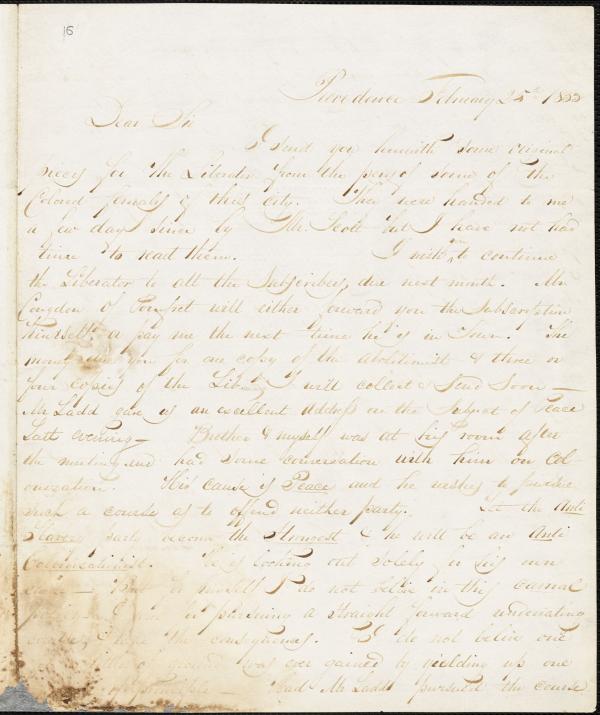 16
Providence February 25th 1833
Dear Sir
I send you herewith some original
pieces for the Liberator from the pens of some of the
Colored females of this City. They were handed to me
a few days since by Mr. Scott but I have not had
time to read them. I wish you to continue
the Liberator to all the Subscribers, due next month. Mr
Congdon of Pomfret will either forward you the Subscription
himself or pay me the next time he is in Town. The
money due you for one copy of the abolitionist & three or
four copies of the Libr. I will collect & send soon —
Mr Ladd gave us an excellent address on the Subject of Peace
Last evening — Brother & myself was at his room after
the meeting and had some conversation with him on Col
onization. His cause is Peace and he wishes to pursue
such a course as to offend neither party. Let the Anti
Slavery party become the Strongest & he will be an Anti
Colonizationist. He is looking out solely for his own
— But for myself I do not believe in this carnal
I am for pursuing a straight forward undeviating
course, the consequences. I do not believe one
of ground was ever gained by yielding up one
of principle — Had Mr Ladd pursued the course